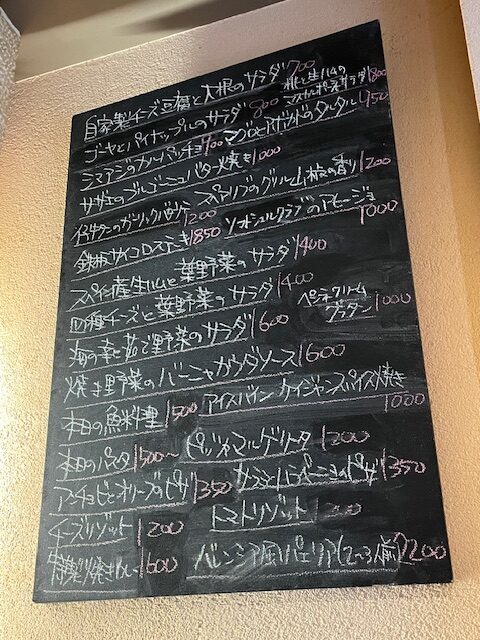 自家製チーズ豆腐と大根のサラダ 700
桃と生ハムの
マスカルポーネサラダ 1800
ゴーヤとパイナップルのサラダ 800
マグロとアボガドのタルタル 950
シマアジのカルパッチョ 900
サザエのゴルゴンゾーラバター焼き 1000
スペアリブのグリル 山椒の香り 1200
ガーリックバター 1200
ソフトシェルクラブのアヒージョ 1000
鉄板サイコロステーキ 1850
スペイン産生ハムと葉野菜のサラダ 1400
四種チーズと葉野菜のサラダ 1400
ペシャメクリーム
グラタン 1000
海の幸と茹で野菜のサラダ 1600
焼き野菜のバーニャカウダソース 1600
本日の魚料理 1500
アイスバイン ケイジャンスパイス焼き
1000
本日のパスタ 1500〜
ピッツァマルゲリータ 1200
アンチョビとオリーブのピザ 1350
サラミとハラペーニョのピザ 1350
チーズリゾット 1200
トマトリゾット 1200
特製焼きカレー 1600
バレンシア風パエリア(2〜3人前) 2200